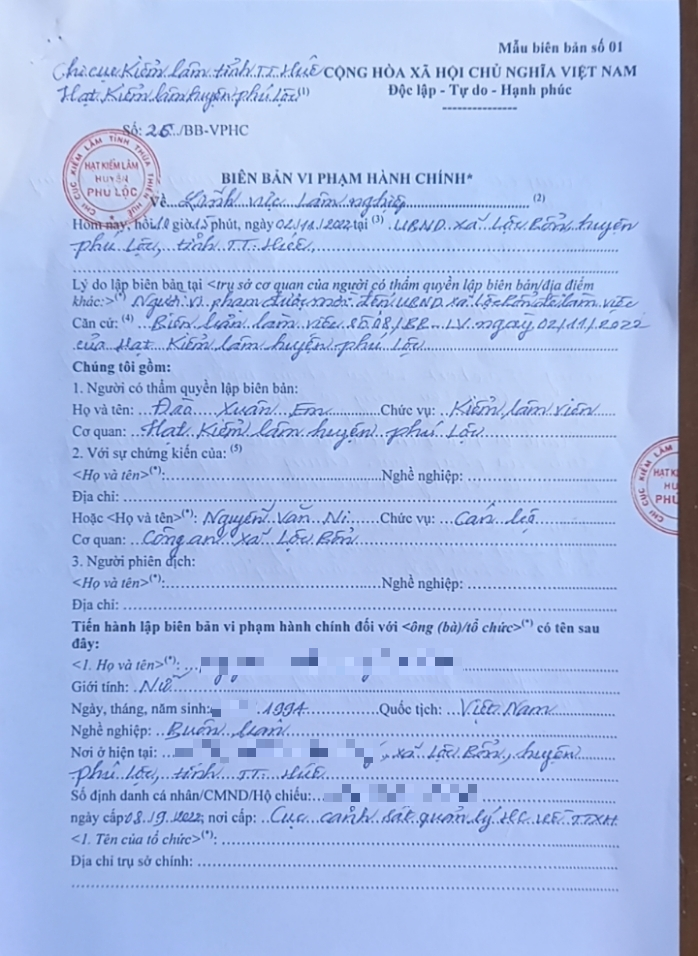 Mẫu biên bản số 01
Chi cục Kiểm lâm tỉnh T.T. Huế CỘNG HÒA XÃ HỘI CHỦ NGHĨA VIỆT NAM
Hạt Kiểm lâm huyện Phú Lộc(1) Độc lập - Tự do - Hạnh phúc
Số: 26../BB-VPHC
CHI CỤC KIỂM LÂM TỈNH THỪA THIÊN HUẾ
HẠT KIỂM LÂM
HUYỆN
PHÚ LỘC
BIÊN BẢN VI PHẠM HÀNH CHÍNH*
Về Lĩnh vực Lâm nghiệp (2)
Hôm nay, hồi giờ 15 phút, ngày 02/11/2022 tại (3) UBND xã Lộc Bổn, huyện
Phú Lộc, tỉnh T.T. Huế,
Lý do lập biên bản tại <trụ sở cơ quan của người có thẩm quyền lập biên bản/địa điểm
khác:>(*) Người vi phạm được mời đến UBND xã Lộc Bổn để làm việc
Căn cứ: (4) Biên bản làm việc số 08/BB-LV ngày 02/11/2022
của Hạt Kiểm lâm huyện Phú Lộc
Chúng tôi gồm:
1. Người có thẩm quyền lập biên bản:
Họ và tên: Đào Xuân Em Chức vụ: Kiểm lâm viên
Cơ quan: Hạt Kiểm lâm huyện Phú Lộc
2. Với sự chứng kiến của: (5)
<Họ và tên>(*): Nghề nghiệp:
Địa chỉ:
Hoặc <Họ và tên>(*): Nguyễn Văn Ni Chức vụ: Cán bộ
Cơ quan: Công an xã Lộc Bổn
3. Người phiên dịch:
<Họ và tên>(*): Nghề nghiệp:
Địa chỉ:
Tiến hành lập biên bản vi phạm hành chính đối với <ông (bà)/tổ chức>(*) có tên sau
đây:
<1. Họ và tên>(*):
Giới tính: Nữ
Ngày, tháng, năm sinh: 1994 Quốc tịch: Việt Nam
Nghề nghiệp: Buôn bán
Nơi ở hiện tại: , xã Lộc Bổn, huyện
Phú Lộc, tỉnh T.T. Huế
Số định danh cá nhân/CMND/Hộ chiếu:
ngày cấp 08/9/2022; nơi cấp: Cục cảnh sát quản lý HC về TTXH.
<1. Tên của tổ chức>(*):
Địa chỉ trụ sở chính: